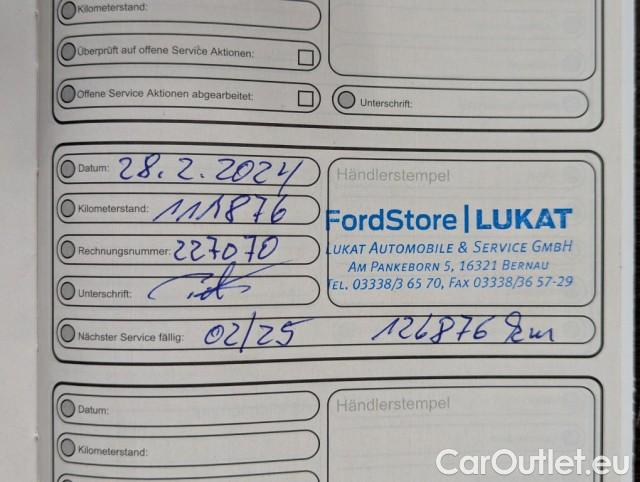 Kilometerstand:
Überprüft auf offene Service Aktionen:
Offene Service Aktionen abgearbeitet:
Unterschrift:
Datum: 28.2.2024
Kilometerstand: 111876
Rechnungsnummer: 227070
Unterschrift:
Händlerstempel
FordStore | LUKAT
LUKAT AUTOMOBILE & SERVICE GMBH
AM PANKEBORN 5, 16321 BERNAU
TEL. 03338/3 65 70, FAX 03338/36 57-29
Nächster Service fällig: 02/25 126876 km
Datum:
Händlerstempel
Kilometerstand:
CarOutlet.eu